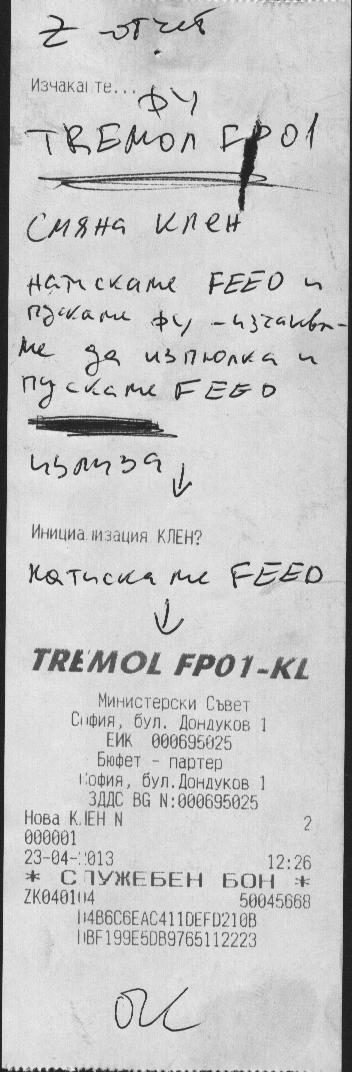 Z отчет
Изчакайте...
ФУ
TREMOL FP01
СМЯНА КЛЕН
натискаме FEED и
пускаме ФУ - изчаква-
ме да изпюпка и
пускаме FEED
излиза ↓
Инициализация КЛЕН?
Натискаме FEED
↓
TREMOL FP01-KL
Министерски Съвет
София, бул. Дондуков 1
ЕИК 000695025
Бюфет - партер
София, бул.Дондуков 1
ЗДДС BG N:000695025
Нова КЛЕН N 2
000001
23-04-2013 12:26
* СЛУЖЕБЕН БОН *
ZK040104 50045668
D4B6C6EAC411DEFD210B
DBF199E5DB9765112223
OK